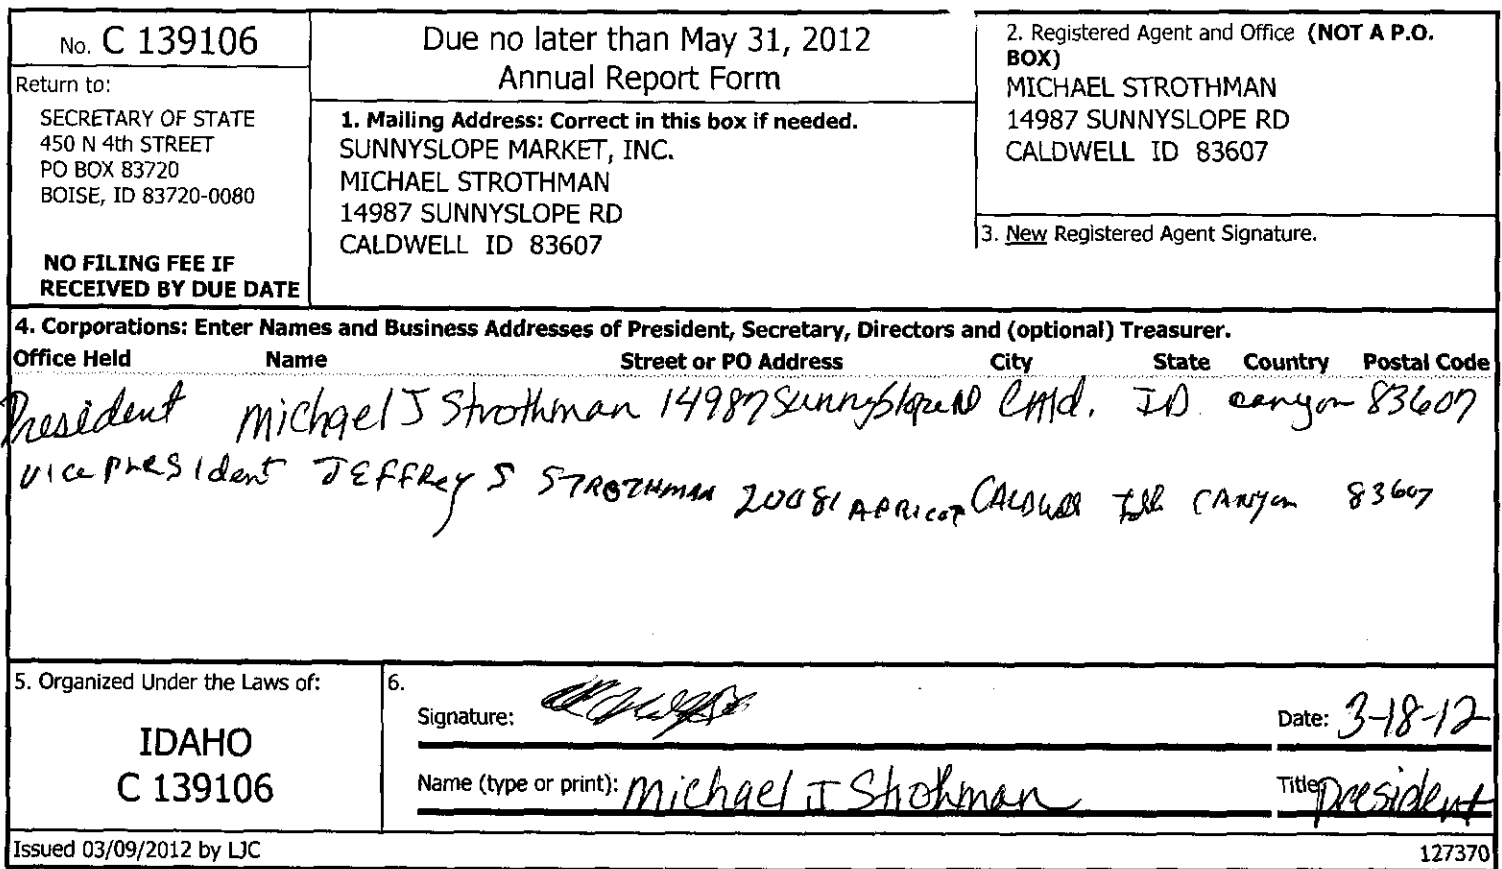 No. C 139106
Return to:
SECRETARY OF STATE
450 N 4th STREET
PO BOX 83720
BOISE, ID 83720-0080
NO FILING FEE IF
RECEIVED BY DUE DATE
Due no later than May 31, 2012
Annual Report Form
1. Mailing Address: Correct in this box if needed.
SUNNYSLOPE MARKET, INC.
MICHAEL STROTHMAN
14987 SUNNYSLOPE RD
CALDWELL ID 83607
2. Registered Agent and Office (NOT A P.O.
BOX)
MICHAEL STROTHMAN
14987 SUNNYSLOPE RD
CALDWELL ID 83607
3. New Registered Agent Signature.
4. Corporations: Enter Names and Business Addresses of President, Secretary, Directors and (optional) Treasurer.
Office Held Name Street or PO Address City State Country Postal Code
President Michael J Strothman 14987 Sunnyslope Rd Cald. ID canyon 83607
vice president JEFFREY S STROTHMAN 20081 APRICOT CALDWELL CANYon 83607
5. Organized Under the Laws of:
IDAHO
C 139106
6.
Signature:
Date: 3-18-12
Name (type or print): Michael J Strohman
Title: president
Issued 03/09/2012 by LJC
127370